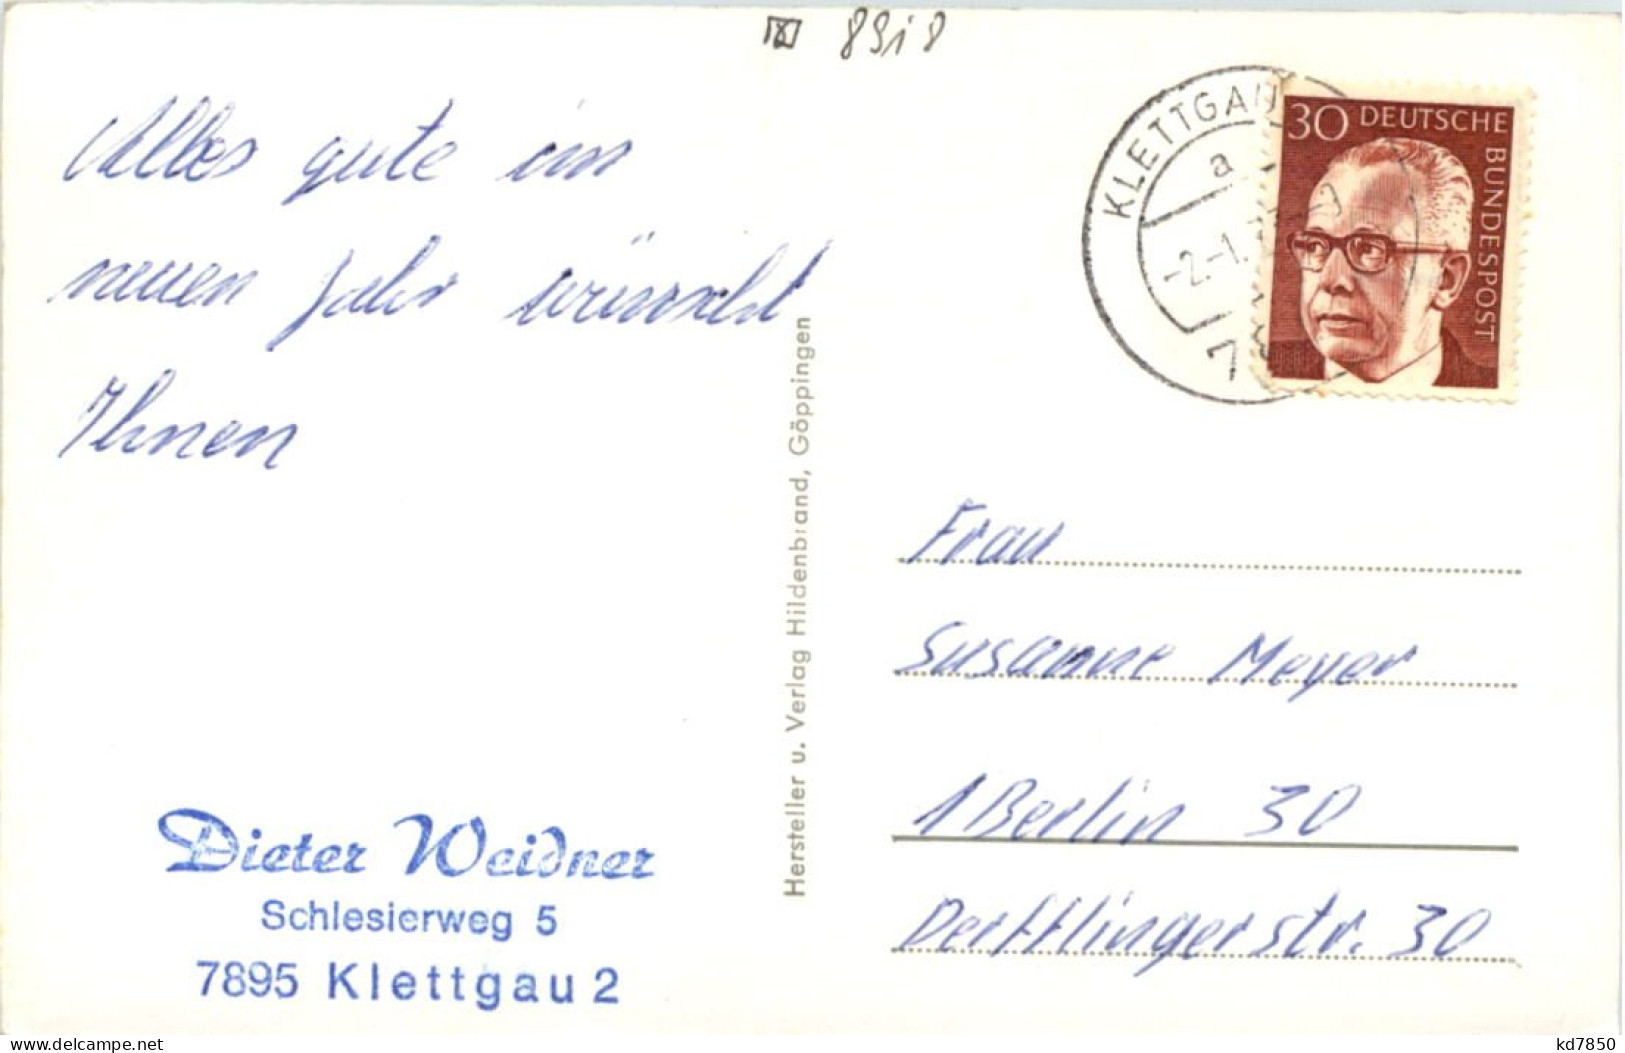 8918
Alles gute im
neuen Jahr wünscht
Ihnen
Dieter Weidner
Schlesierweg 5
7895 Klettgau 2
Hersteller u. Verlag Hildenbrand, Göppingen
KLETTGAU
a
-2.-1.
30 DEUTSCHE
BUNDESPOST
Frau
Susanne Meyer
1 Berlin 30
Derfflingerstr. 30
https://www.delcampe.net
kd7850